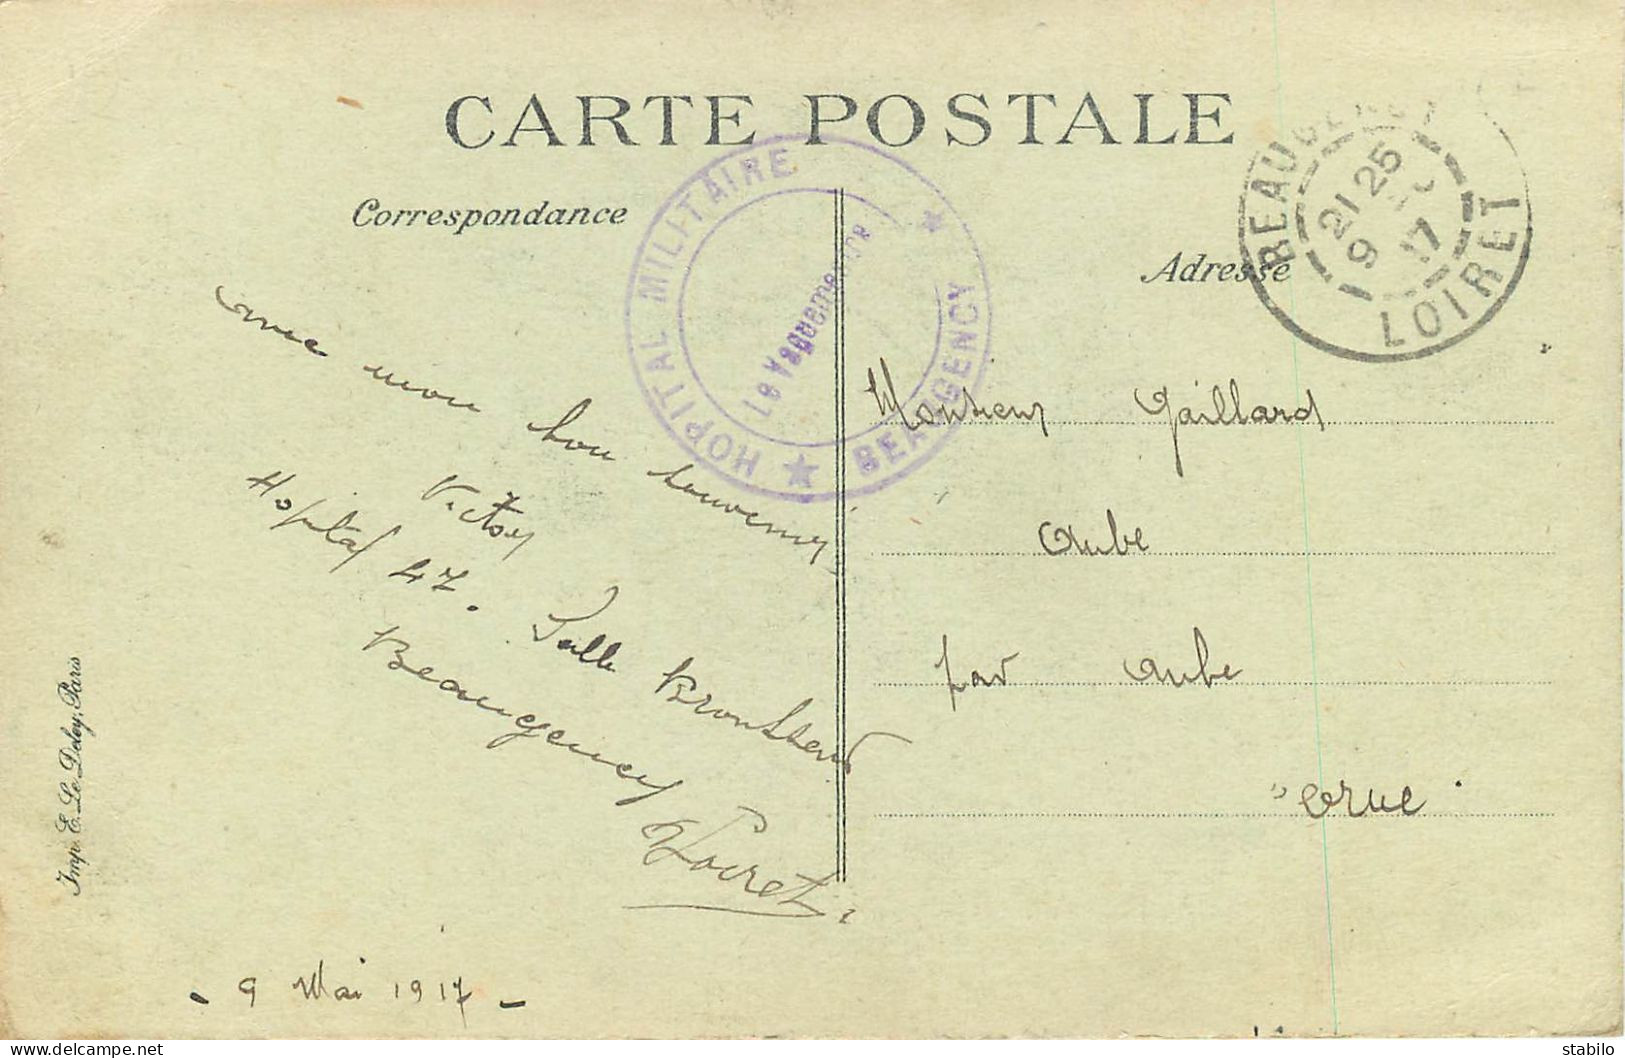 CARTE POSTALE
Correspondance
Adresse
HOPITAL MILITAIRE ★ BEAUGENCY ★
Le Vaguemestre
BEAUGENCY
21 25
9 17
LOIRET
avec mon bon souvenir
Victor
Hopital 47. Salle
Beaugency
Loiret
- 9 Mai 1917 -
Monsieur Gaillard
Aube
par Aube
Orne
Imp. E. Le Deley, Paris
stabilo